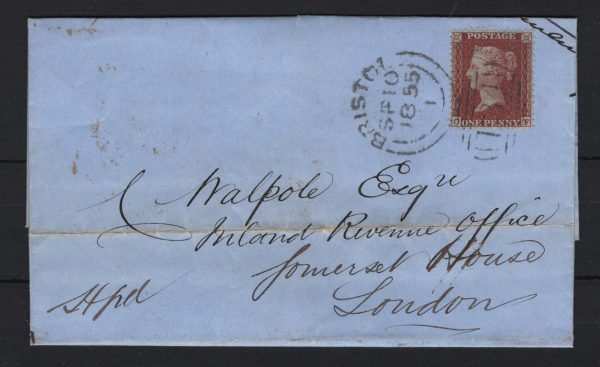 BRISTOL
SP 10
1855
1
POSTAGE
ONE PENNY
Walpole Esqr
Inland Revenue Office
Somerset House
London